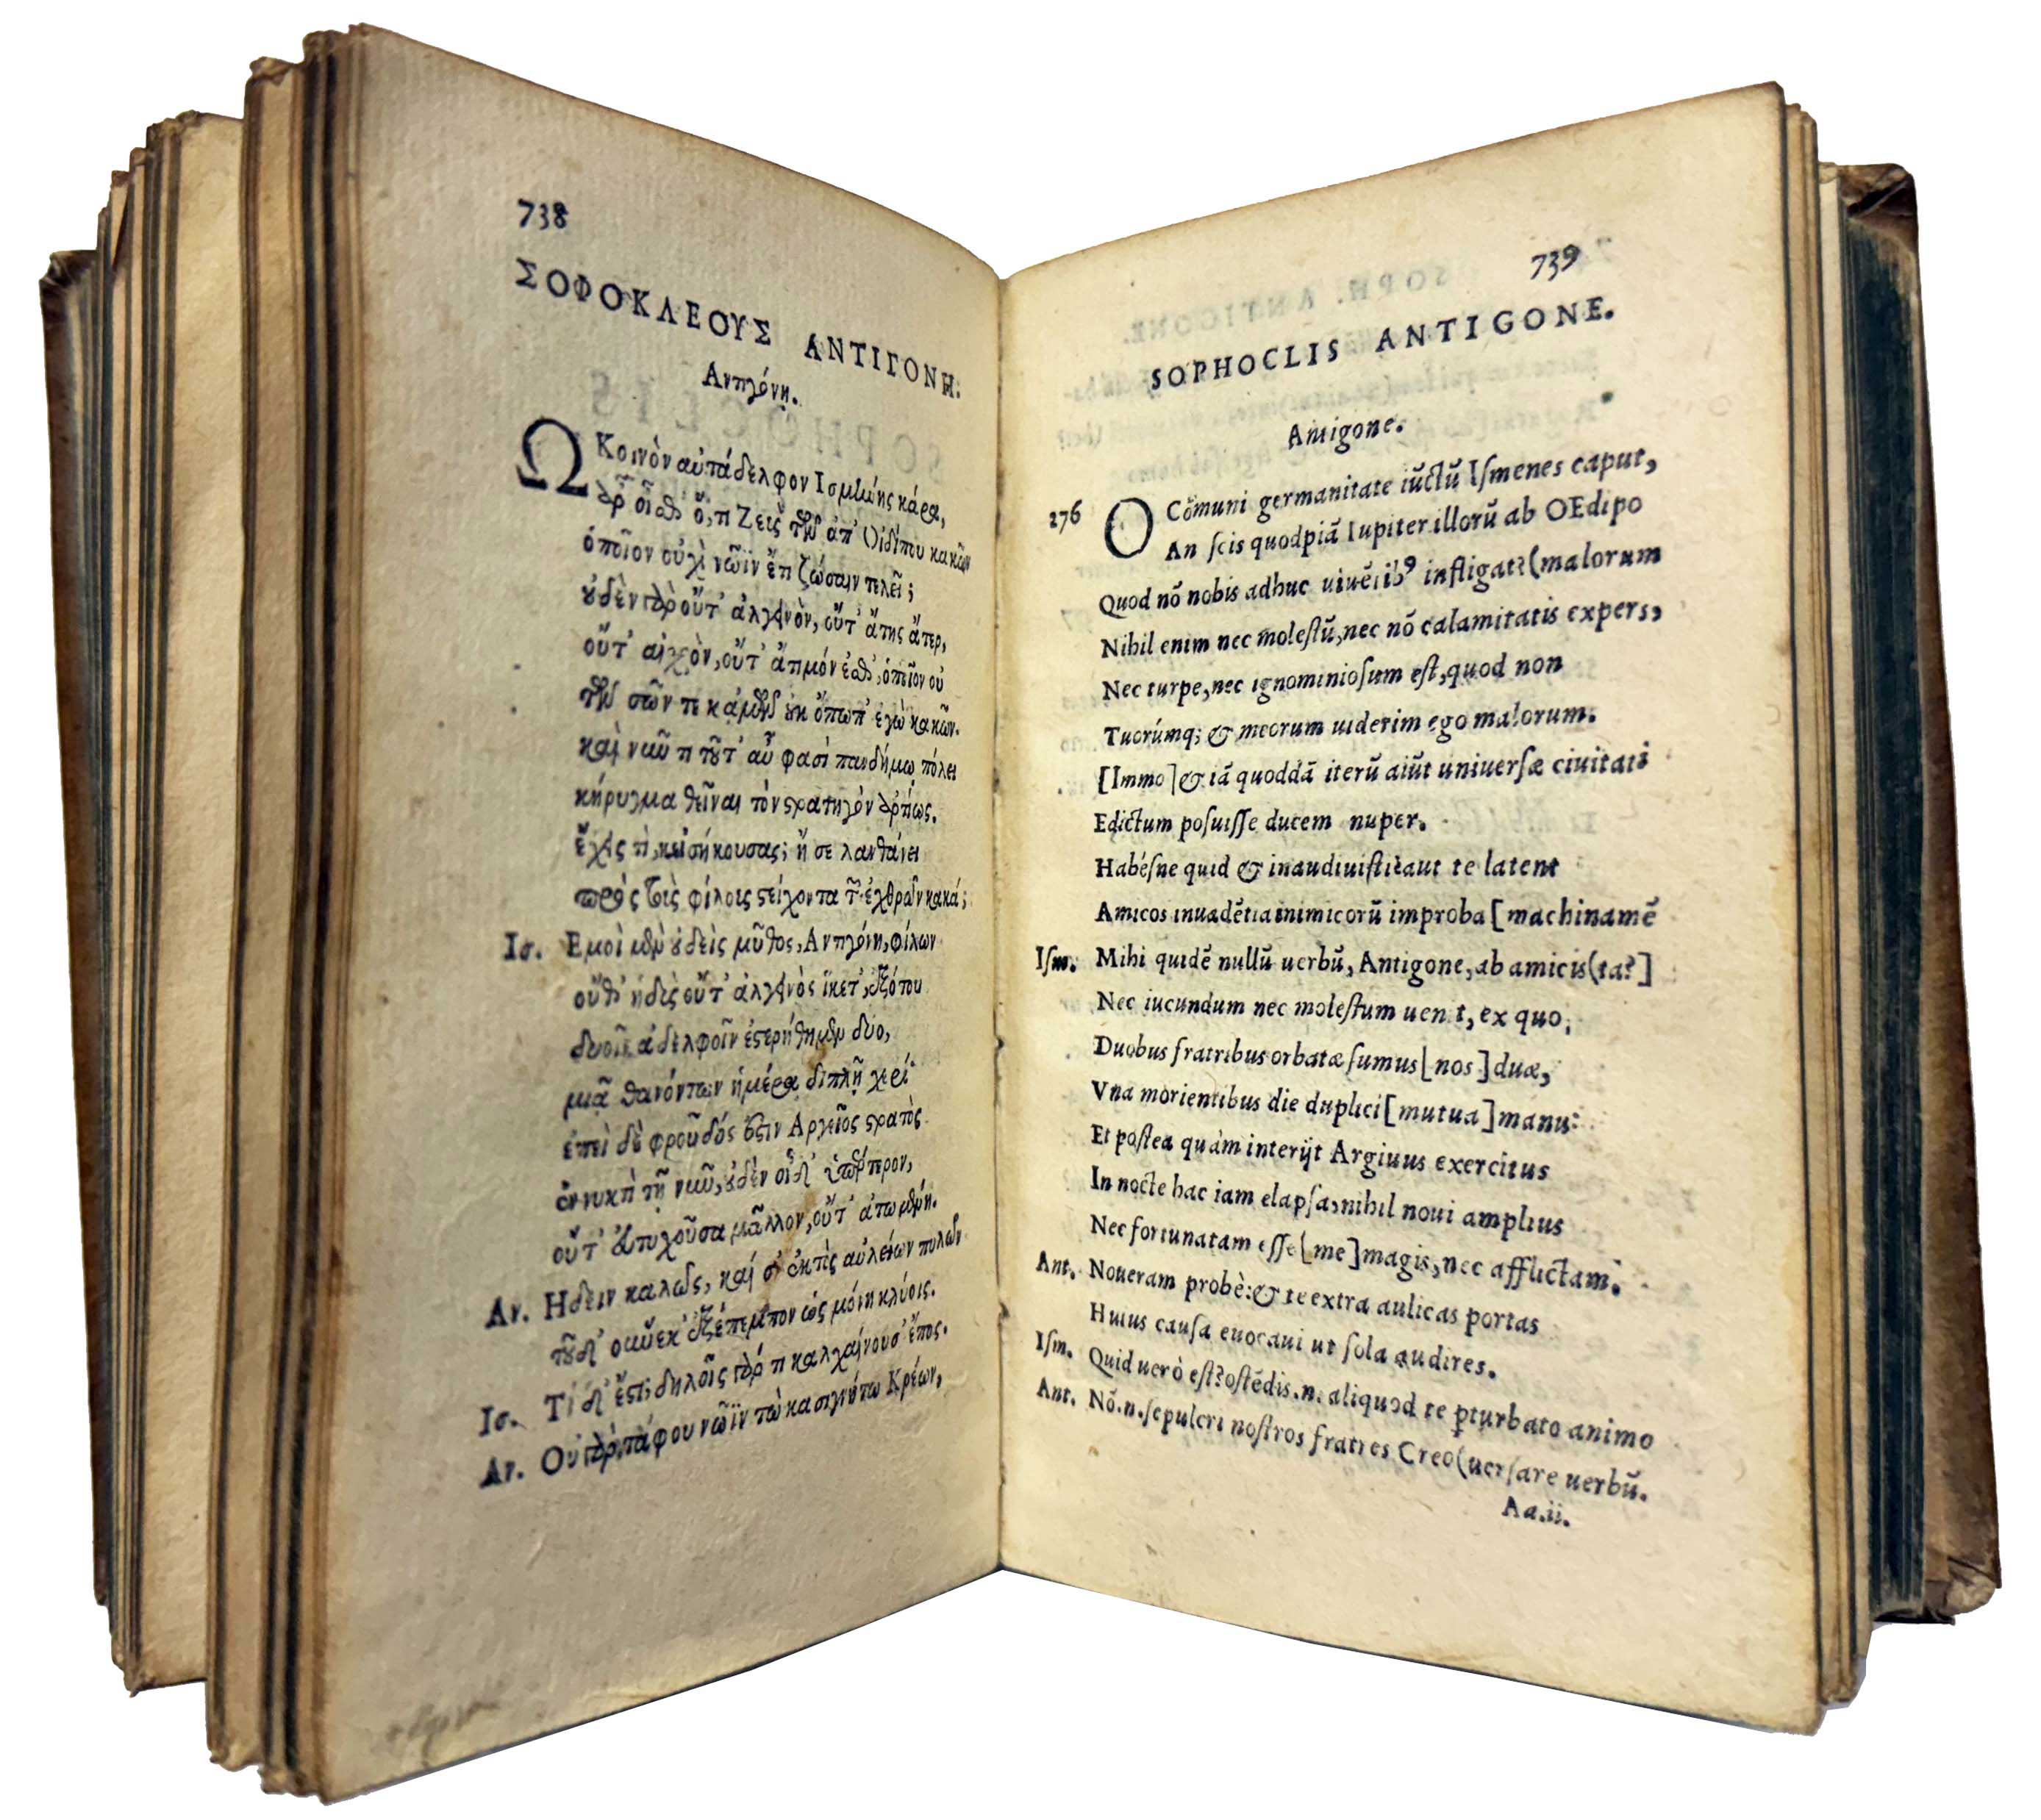 738
ΣΟΦΟΚΛΕΟΥΣ ΑΝΤΙΓΟΝΗ.
Αντιγόνη.
Ω Κοινὸν αὐτάδελφον Ισμήνης κάρα,
ἆρ' οἶσθ' ὅ,τι Ζεὺς τῶν ἀπ' Οἰδίπου κακῶν
ὁποῖον οὐχὶ νῶϊν ἔτι ζώσαιν τελεῖ;
οὐδὲν γὰρ οὔτ' ἀλγεινὸν, οὔτ' ἄτης ἄτερ,
οὔτ' αἰσχρὸν, οὔτ' ἄτιμόν ἐσθ', ὁποῖον οὐ
τῶν σῶν τε κἀμῶν οὐκ ὄπωπ' ἐγὼ κακῶν.
καὶ νῦν τί τοῦτ' αὖ φασὶ πανδήμῳ πόλει
κήρυγμα θεῖναι τὸν στρατηγὸν ἀρτίως.
ἔχεις τὶ, κεἰσήκουσας; ἤ σε λανθάνει
πρὸς τοὺς φίλοις στείχοντα τῶν ἐχθρῶν κακά;
Ισ. Εμοὶ μὲν οὐδεὶς μῦθος, Αντιγόνη, φίλων
οὔθ' ἡδὺς οὔτ' ἀλγεινὸς ἵκετ', ἐξότου
δυοῖν ἀδελφοῖν ἐστερήθημεν δύο,
μιᾷ θανόντων ἡμέρᾳ διπλῇ χερί·
ἐπεὶ δὲ φροῦδός ἐστιν Αργεῖος στρατὸς
ἐν νυκτὶ τῇ νῦν, οὐδὲν οἶδ' ὑπέρτερον,
οὔτ' εὐτυχοῦσα μᾶλλον, οὔτ' ἀτωμένη.
Αν. Ηδειν καλῶς, καί σ' ἐκτὸς αὐλείων πυλῶν
τοῦδ' οὕνεκ' ἐξέπεμπον ὡς μόνη κλύοις.
Ισ. Τί δ' ἔστι; δηλοῖς γάρ τι καλχαίνουσ' ἔπος.
Αν. Οὐ γὰρ τάφου νῶϊν τὼ κασιγνήτω Κρέων,
739
SOPHOCLIS ANTIGONE.
Antigone.
276 O Cõmuni germanitate iũctũ Iſmenes caput,
An ſcis quodpiã Iupiter illorũ ab OEdipo
Quod nõ nobis adhuc uiuẽtibꝰ infligat? (malorum
Nihil enim nec moleſtũ, nec nõ calamitatis expers,
Nec turpe, nec ignominioſum eſt, quod non
Tuorúmq; & meorum uiderim ego malorum.
[Immo] & iã quoddã iterũ aiũt uniuerſæ ciuitati
Edictum poſuiſſe ducem nuper.
Habéſne quid & inaudiuiſti? aut te latent
Amicos inuadẽtia inimicorũ improba [machinamẽ
Iſm. Mihi quidẽ nullũ uerbũ, Antigone, ab amicis (ta?]
Nec iucundum nec moleſtum uenit, ex quo,
Duobus fratribus orbatæ ſumus [nos] duæ,
Vna morientibus die duplici [mutua] manu:
Et poſtea quàm interijt Argiuus exercitus
In nocte hac iam elapſa, nihil noui amplius
Nec fortunatam eſſe [me] magis, nec afflictam.
Ant. Noueram probè: & te extra aulicas portas
Huius cauſa euocaui ut ſola audires.
Iſm. Quid uerò eſt? oſtẽdis.n. aliquod te ꝑturbato animo
Ant. Nõ.n. ſepulcri noſtros fratres Creo (uerſare uerbũ.
Aa.ii.